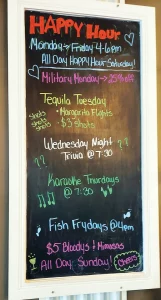 HAPPY HOUR
Monday - Friday 4-6pm
All Day Happy Hour Saturday!
Military Monday → 25% off
Tequila Tuesday
• Margarita Flights
Shots
Shots
Shots
• $3 Shots
Wednesday Night
Trivia @ 7:30
Karaoke Thursdays
@ 7:30
Fish Frydays @ 4pm
$5 Bloodys & Mimosas
All Day Sunday!
Cheers